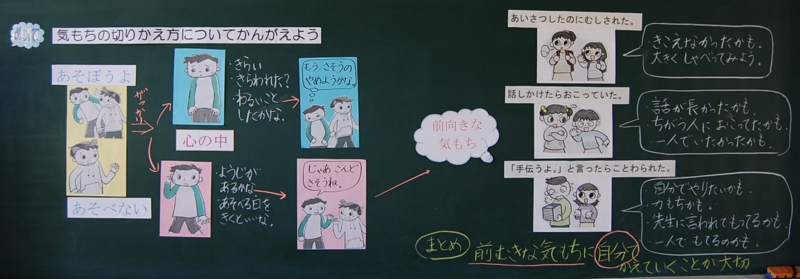 気もちの切りかえ方についてかんがえよう
あそぼうよ
あそべない
・きらい
・きらわれた?
・わるいこと
したかな。
もう、さそうの
やめようかな。
心の中
・ようじが
あるかな
・あそべる日を
きくといいな。
じゃあ こんど
さそうね。
前向きな
気もち
あいさつしたのにむしされた。
・きこえなかったかも。
・大きくしゃべってみよう。
話しかけたらおこっていた。
・話が長かったかも。
・ちがう人におこってたかも。
・一人でいたかったかも。
「手伝うよ。」と言ったらことわられた。
・自分でやりたいかも。
・力もちかも。
・先生に言われてもってるかも。
・一人でもてるのかも。
まとめ
前むきな気もちに自分で
かえていくことが大切